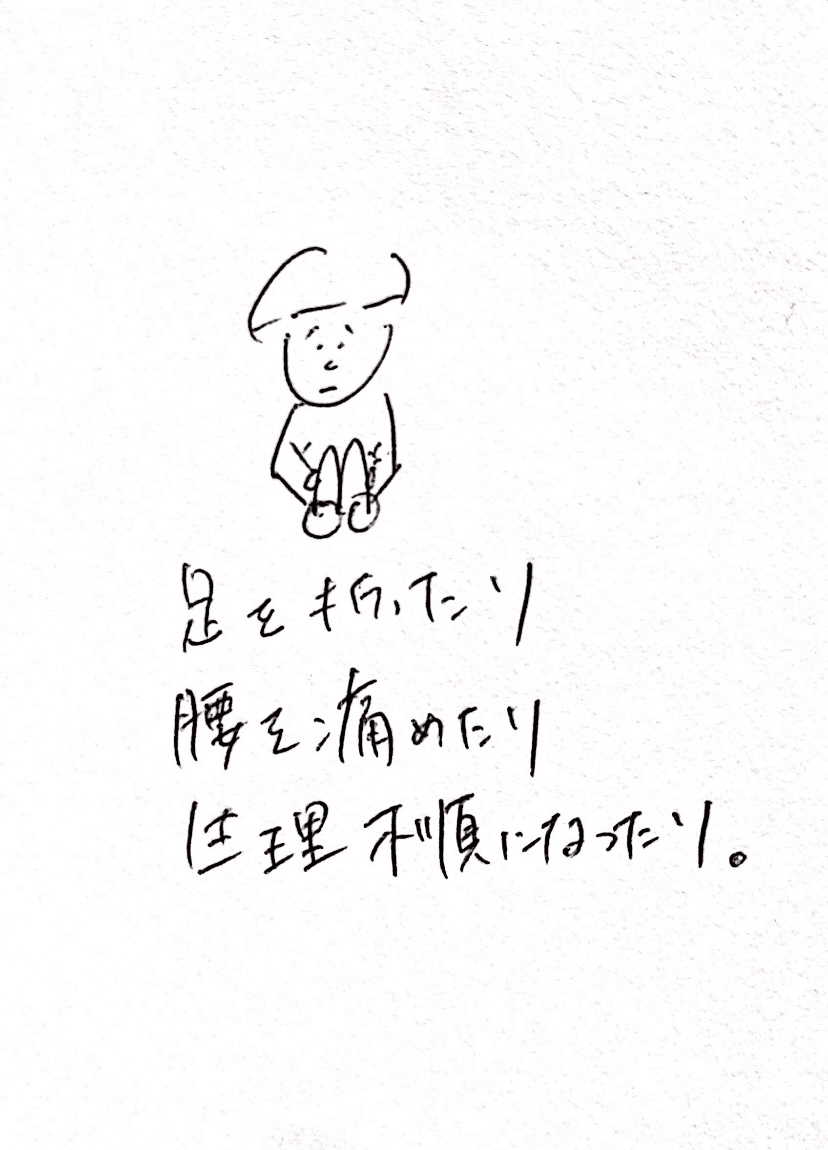 足を折ったり
腰を痛めたり
生理不順になったり。